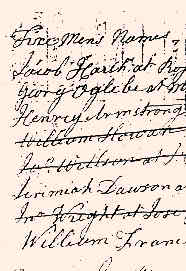 Fire Mens Names,
Jacob Harth at
Georg Oglebe at
Henry Armstrong
William Howar
Jno. Willson at
Jeremiah Dawson a
Jno Wright at Jose
William Franc